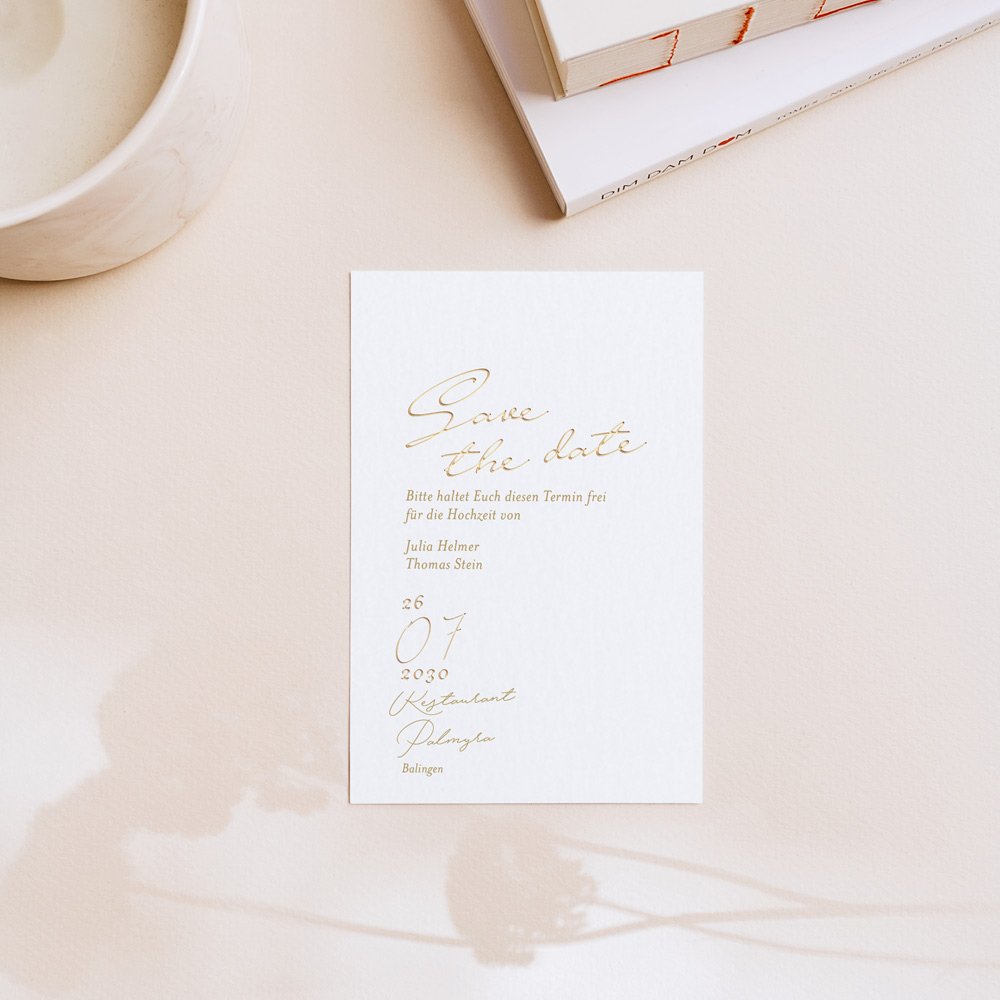 DIM DAM DOM
Save
the date
Bitte haltet Euch diesen Termin frei
für die Hochzeit von
Julia Helmer
Thomas Stein
26
07
2030
Restaurant
Palmyra
Balingen